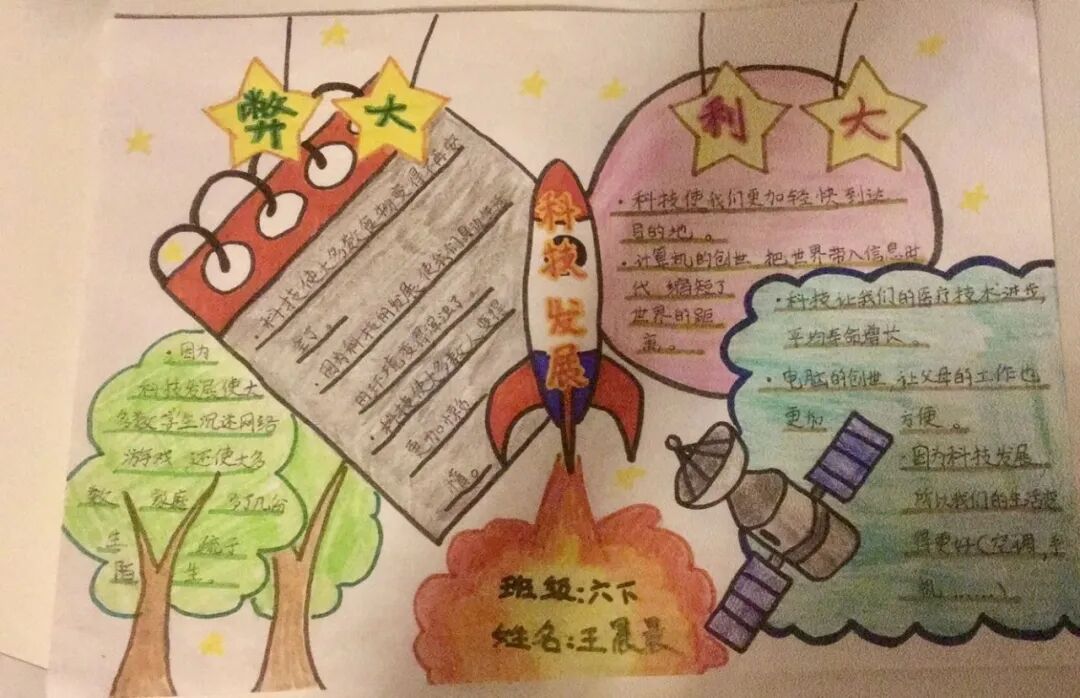 弊大
利大
科技发展
·科技使大多数食物变得不再安
全了。
·因为科技的发展,使我们周边生活
用环境变得
·科技使大多数人变得
更加懒惰
。
·因为
科技发展使大
多数学生沉迷网络
游戏 还使大多
数 家庭 多了几份
生
陌 生。
·科技使我们更加轻快到达
目的地。
·计算机的创世 把世界带入信息时
代 缩短了
世界的距
离。
·科技让我们的医疗技术进步,
平均寿命增长。
·电脑的创世,让父母的工作也
更加 方便。
·因为科技发展
所以我们的生活变
得更好(空调,手
机……)
班级:六下
姓名:王晨晨